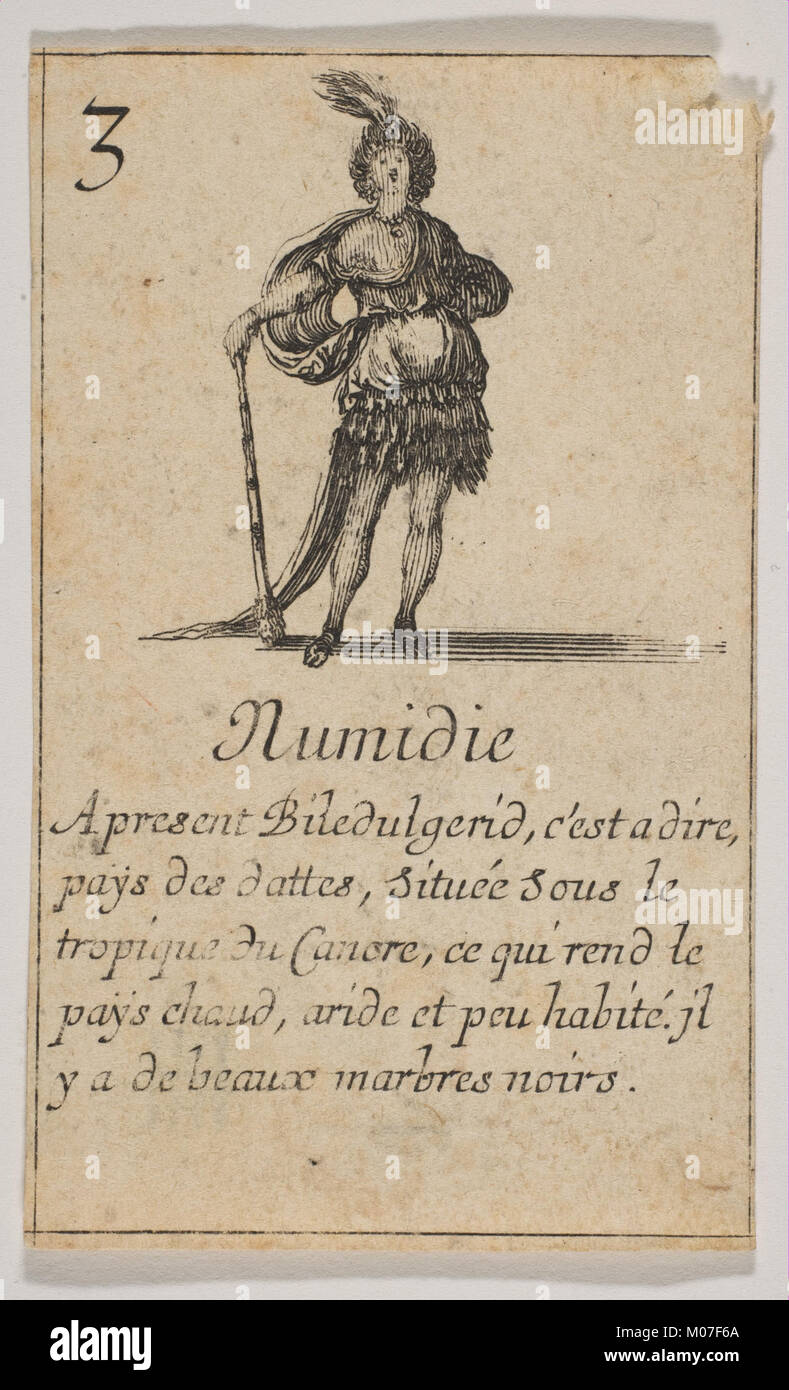 3
Numidie
Apresent Biledulgerid, c'est a dire,
paÿs des dattes, située sous le
tropique du Cancre, ce qui rend le
paÿs chaud, aride et peu habité. jl
y a de beaux marbres noirs.
a
a
a
a
alamy stock photo
M07F6A
www.alamy.com